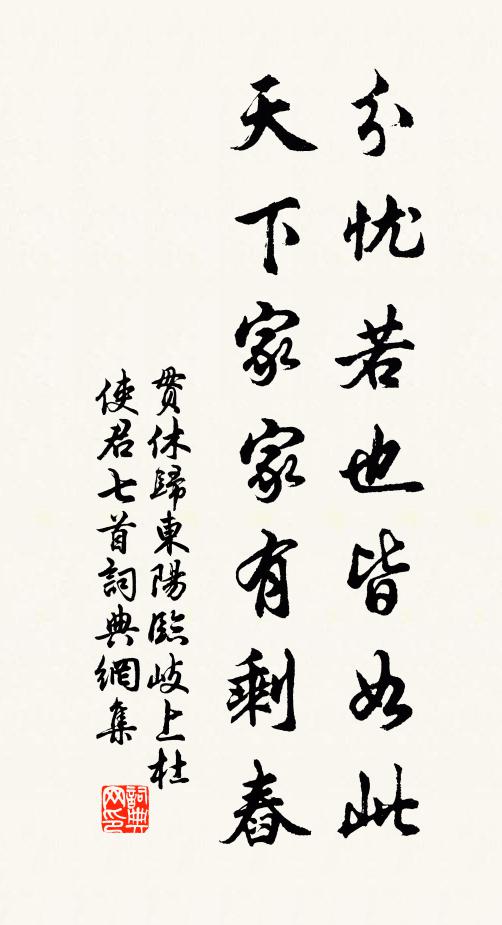 分忧若也皆如此
天下家家有剩舂
貫休歸東陽臨岐上杜
使君七首詞典網集
詞典
网印